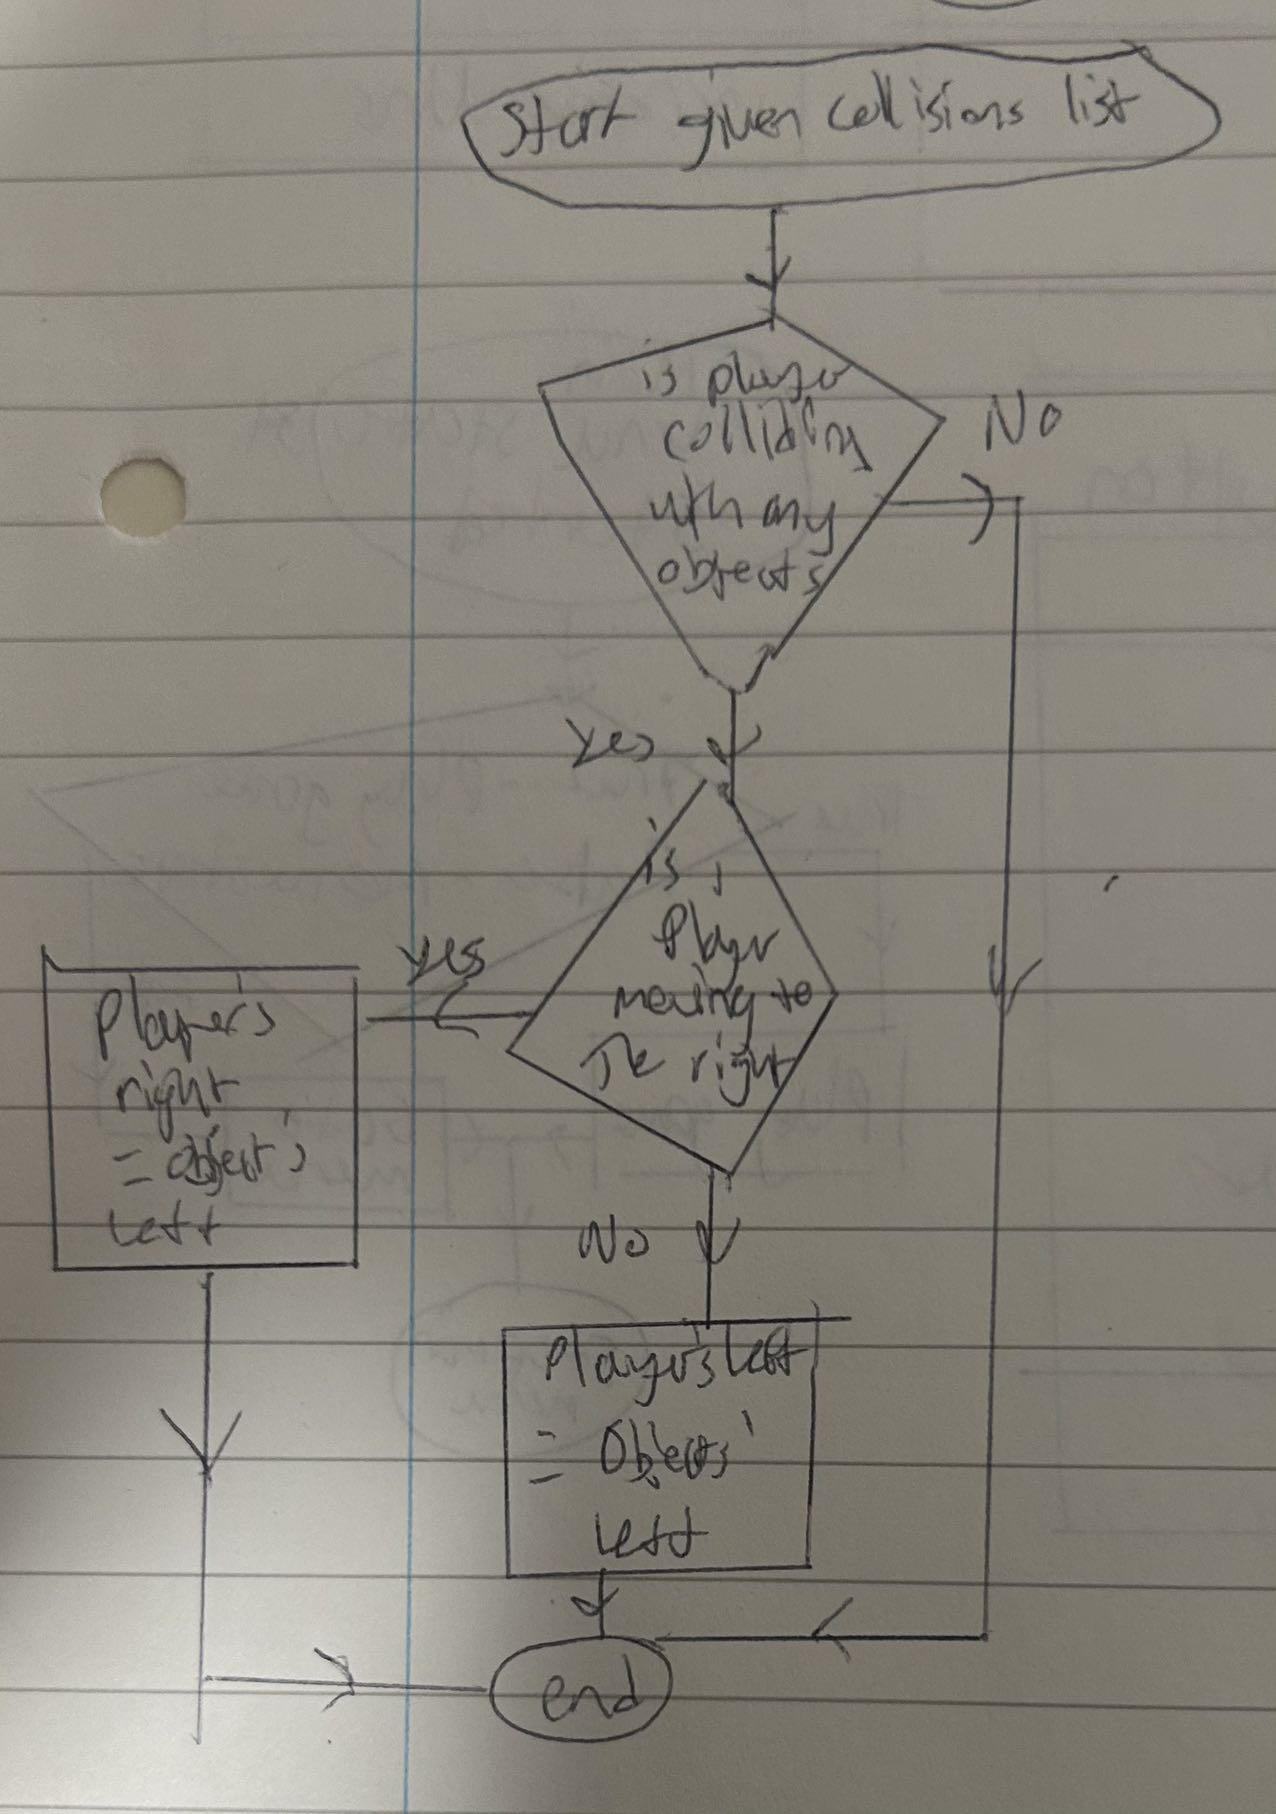 Start given collisions list
is player
colliding
with any
objects
No
Yes
is
Player
moving to
The right
Yes
Player's
right
= object's
Left
No
Player's Left
= Objects'
Left
end